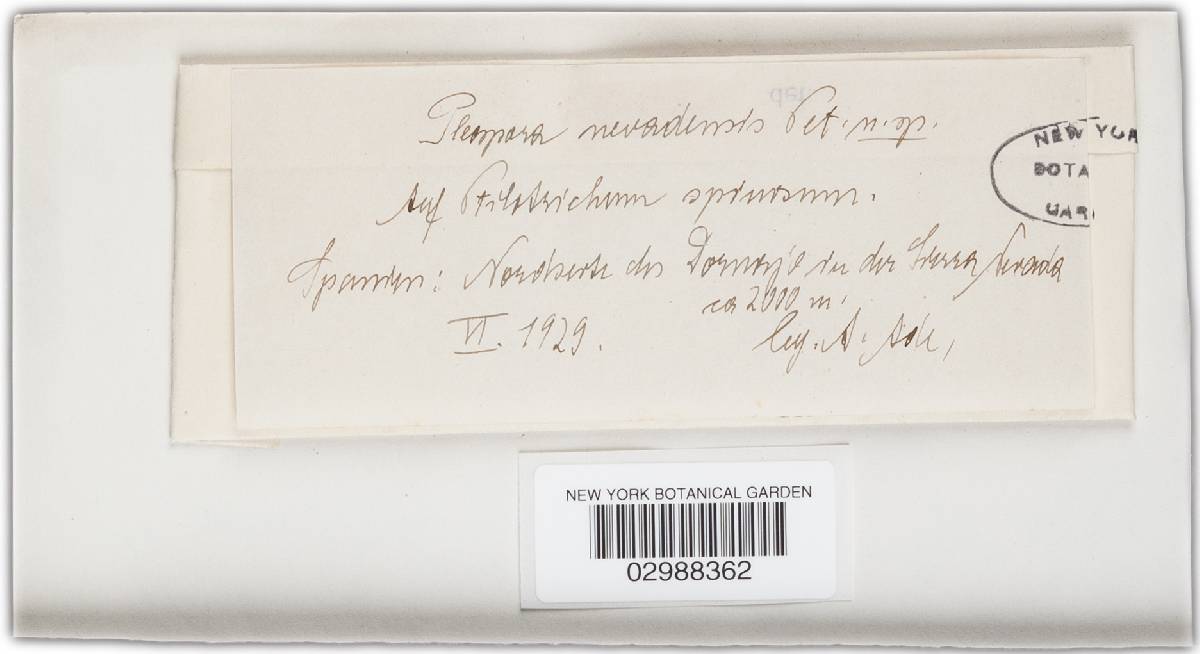 Pleospora nevadensis Pet. n. sp.
Auf Ptilotrichum spinosum.
Spanien: Nordseite des Dornajo in der Sierra Nevada
ca 2000 m.
VI. 1929. leg. A. Ade,
NEW YOR
BOTA
GAR
NEW YORK BOTANICAL GARDEN
02988362